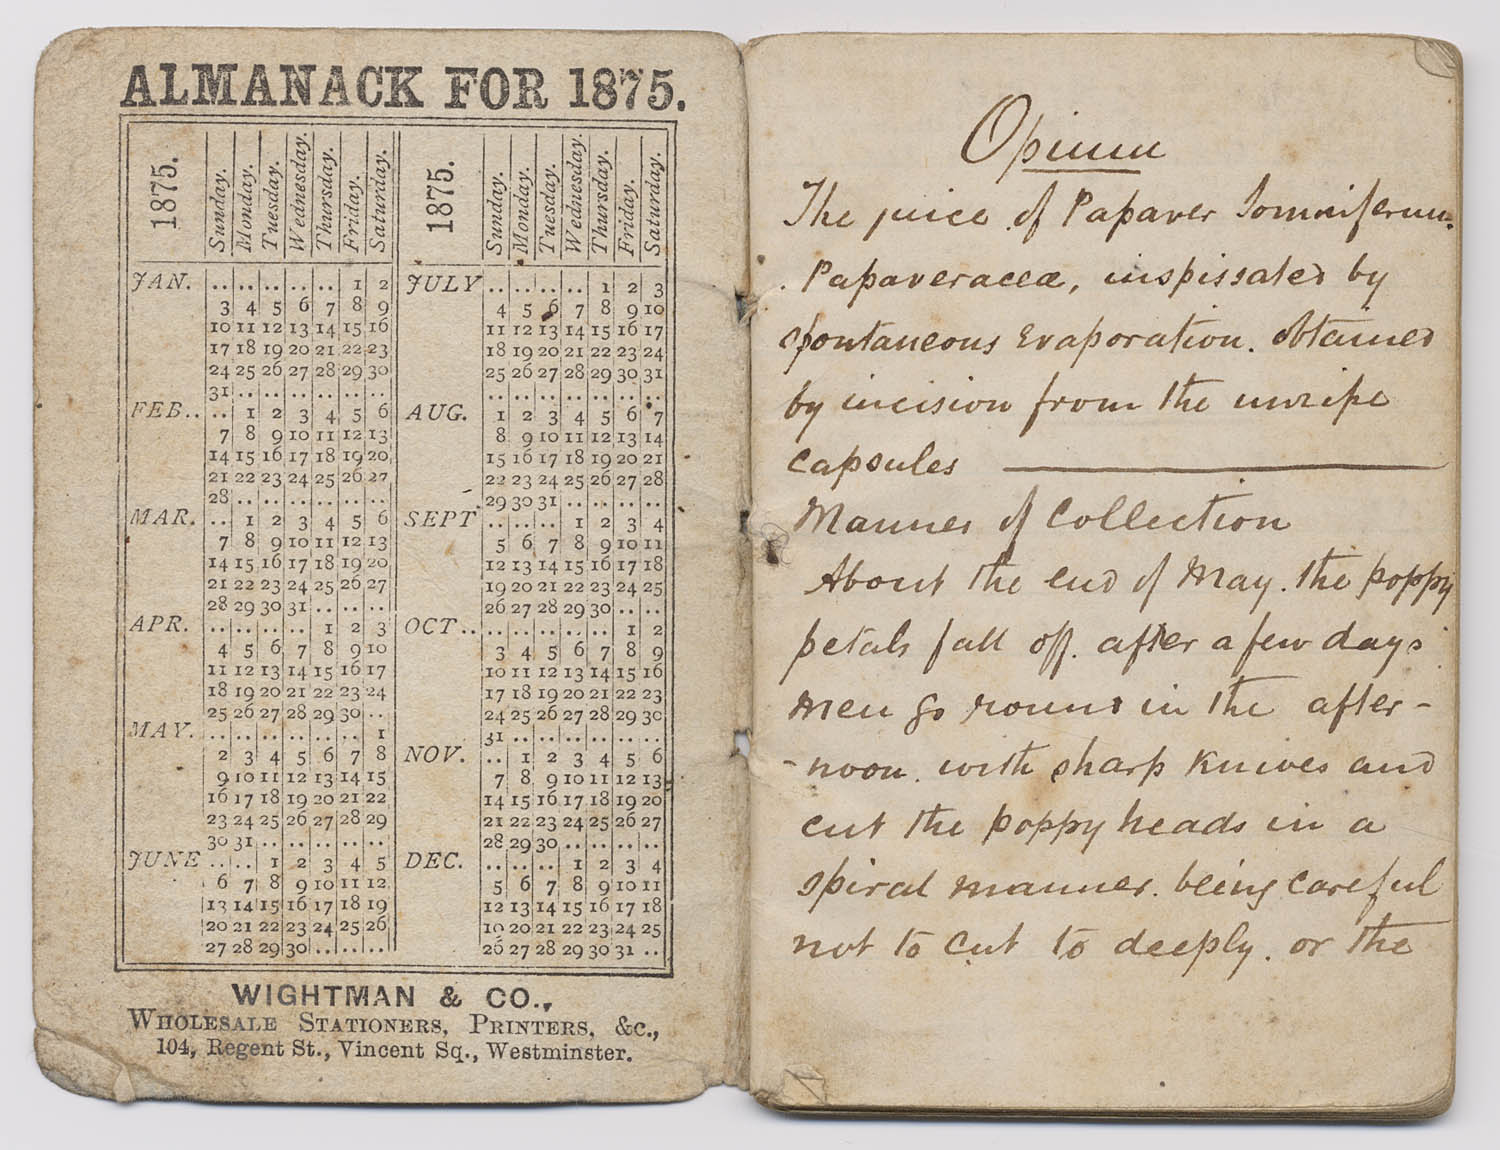 ALMANACK FOR 1875.
1875. Sunday. Monday. Tuesday. Wednesday. Thursday. Friday. Saturday.
JAN. .. .. .. .. .. 1 2
3 4 5 6 7 8 9
10 11 12 13 14 15 16
17 18 19 20 21 22 23
24 25 26 27 28 29 30
31 .. .. .. .. .. ..
FEB. .. .. 1 2 3 4 5 6
7 8 9 10 11 12 13
14 15 16 17 18 19 20
21 22 23 24 25 26 27
28 .. .. .. .. .. ..
MAR. .. 1 2 3 4 5 6
7 8 9 10 11 12 13
14 15 16 17 18 19 20
21 22 23 24 25 26 27
28 29 30 31 .. .. ..
APR. .. .. .. .. 1 2 3
4 5 6 7 8 9 10
11 12 13 14 15 16 17
18 19 20 21 22 23 24
25 26 27 28 29 30 ..
MAY. .. .. .. .. .. .. 1
2 3 4 5 6 7 8
9 10 11 12 13 14 15
16 17 18 19 20 21 22
23 24 25 26 27 28 29
30 31 .. .. .. .. ..
JUNE .. .. 1 2 3 4 5
6 7 8 9 10 11 12
13 14 15 16 17 18 19
20 21 22 23 24 25 26
27 28 29 30 .. .. ..
1875. Sunday. Monday. Tuesday. Wednesday. Thursday. Friday. Saturday.
JULY .. .. .. .. 1 2 3
4 5 6 7 8 9 10
11 12 13 14 15 16 17
18 19 20 21 22 23 24
25 26 27 28 29 30 31
.. .. .. .. .. .. ..
AUG. 1 2 3 4 5 6 7
8 9 10 11 12 13 14
15 16 17 18 19 20 21
22 23 24 25 26 27 28
29 30 31 .. .. .. ..
SEPT .. .. .. 1 2 3 4
5 6 7 8 9 10 11
12 13 14 15 16 17 18
19 20 21 22 23 24 25
26 27 28 29 30 .. ..
OCT. .. .. .. .. .. 1 2
3 4 5 6 7 8 9
10 11 12 13 14 15 16
17 18 19 20 21 22 23
24 25 26 27 28 29 30
31 .. .. .. .. .. ..
NOV. .. 1 2 3 4 5 6
7 8 9 10 11 12 13
14 15 16 17 18 19 20
21 22 23 24 25 26 27
28 29 30 .. .. .. ..
DEC. .. .. .. 1 2 3 4
5 6 7 8 9 10 11
12 13 14 15 16 17 18
19 20 21 22 23 24 25
26 27 28 29 30 31 ..
WIGHTMAN & CO.,
WHOLESALE STATIONERS, PRINTERS, &c.,
104, Regent St., Vincent Sq., Westminster.
Opium
The juice of Papaver Somniferum.
Papaveraceæ, inspissated by
spontaneous Evaporation. obtained
by incision from the unripe
capsules
Manner of Collection
About the end of May. the poppy
petals fall off. after a few days
men go round in the after-
-noon. with sharp Knives and
cut the poppy heads in a
spiral manner. being careful
not to cut to deeply. or the